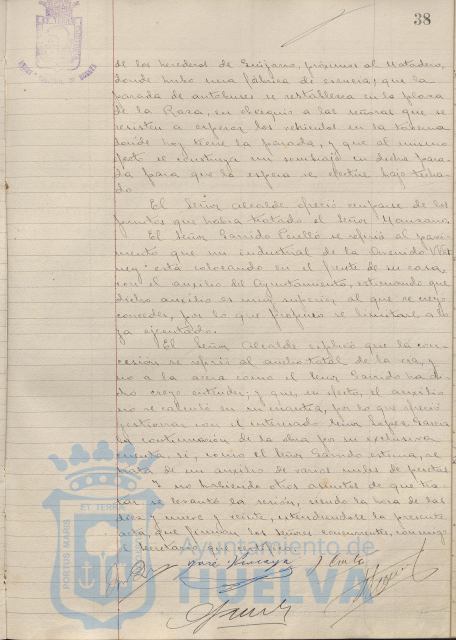 38
de los herederos de Guijarro, próximos al Matadero,
donde hubo una fábrica de esencia; que la
parada de autobuses se restablezca en la plaza
de la Rosa, en obsequio a las señoras que se
resisten a esperar los vehículos en la taberna
donde hoy tiene la parada, y que al mismo
se construya un sombrajo en dicha para-
da para que la espera se efectúe bajo techa-
do.
El Señor Alcalde ofreció ocuparse de los
puntos que había tratado el Señor Manzano.
El Señor Garrido Perelló se refirió al pavi-
mento que un industrial de la Avenida
está colocando en el frente de su casa,
con el auxilio del Ayuntamiento, estimando que
dicho auxilio es muy superior al que se creyó
conceder, por lo que propuso se limitara a lo
ya ejecutado.
El Señor Alcalde explicó que la con-
cesión se refirió al ancho total de la vía, y
no a la acera como el Señor Garrido ha di-
cho creyó entender; y que, en efecto, el auxilio
no se calculó en su cuantía, por lo que ofreció
gestionar con el interesado Señor López García
la continuación de la obra por su exclusiva
cuenta, si, como el Señor Garrido estima, se
trata de un auxilio de varios miles de pesetas.
Y no habiendo otros asuntos de que tra-
tar se levantó la sesión, siendo la hora de las
diez y nueve y veinte, extendiéndose la presente
acta, que firman los Señores concurrentes, conmigo
el Secretario, que certifico.
ET TERRÆ
PORTUS MARIS
Ayuntamiento de
HUELVA